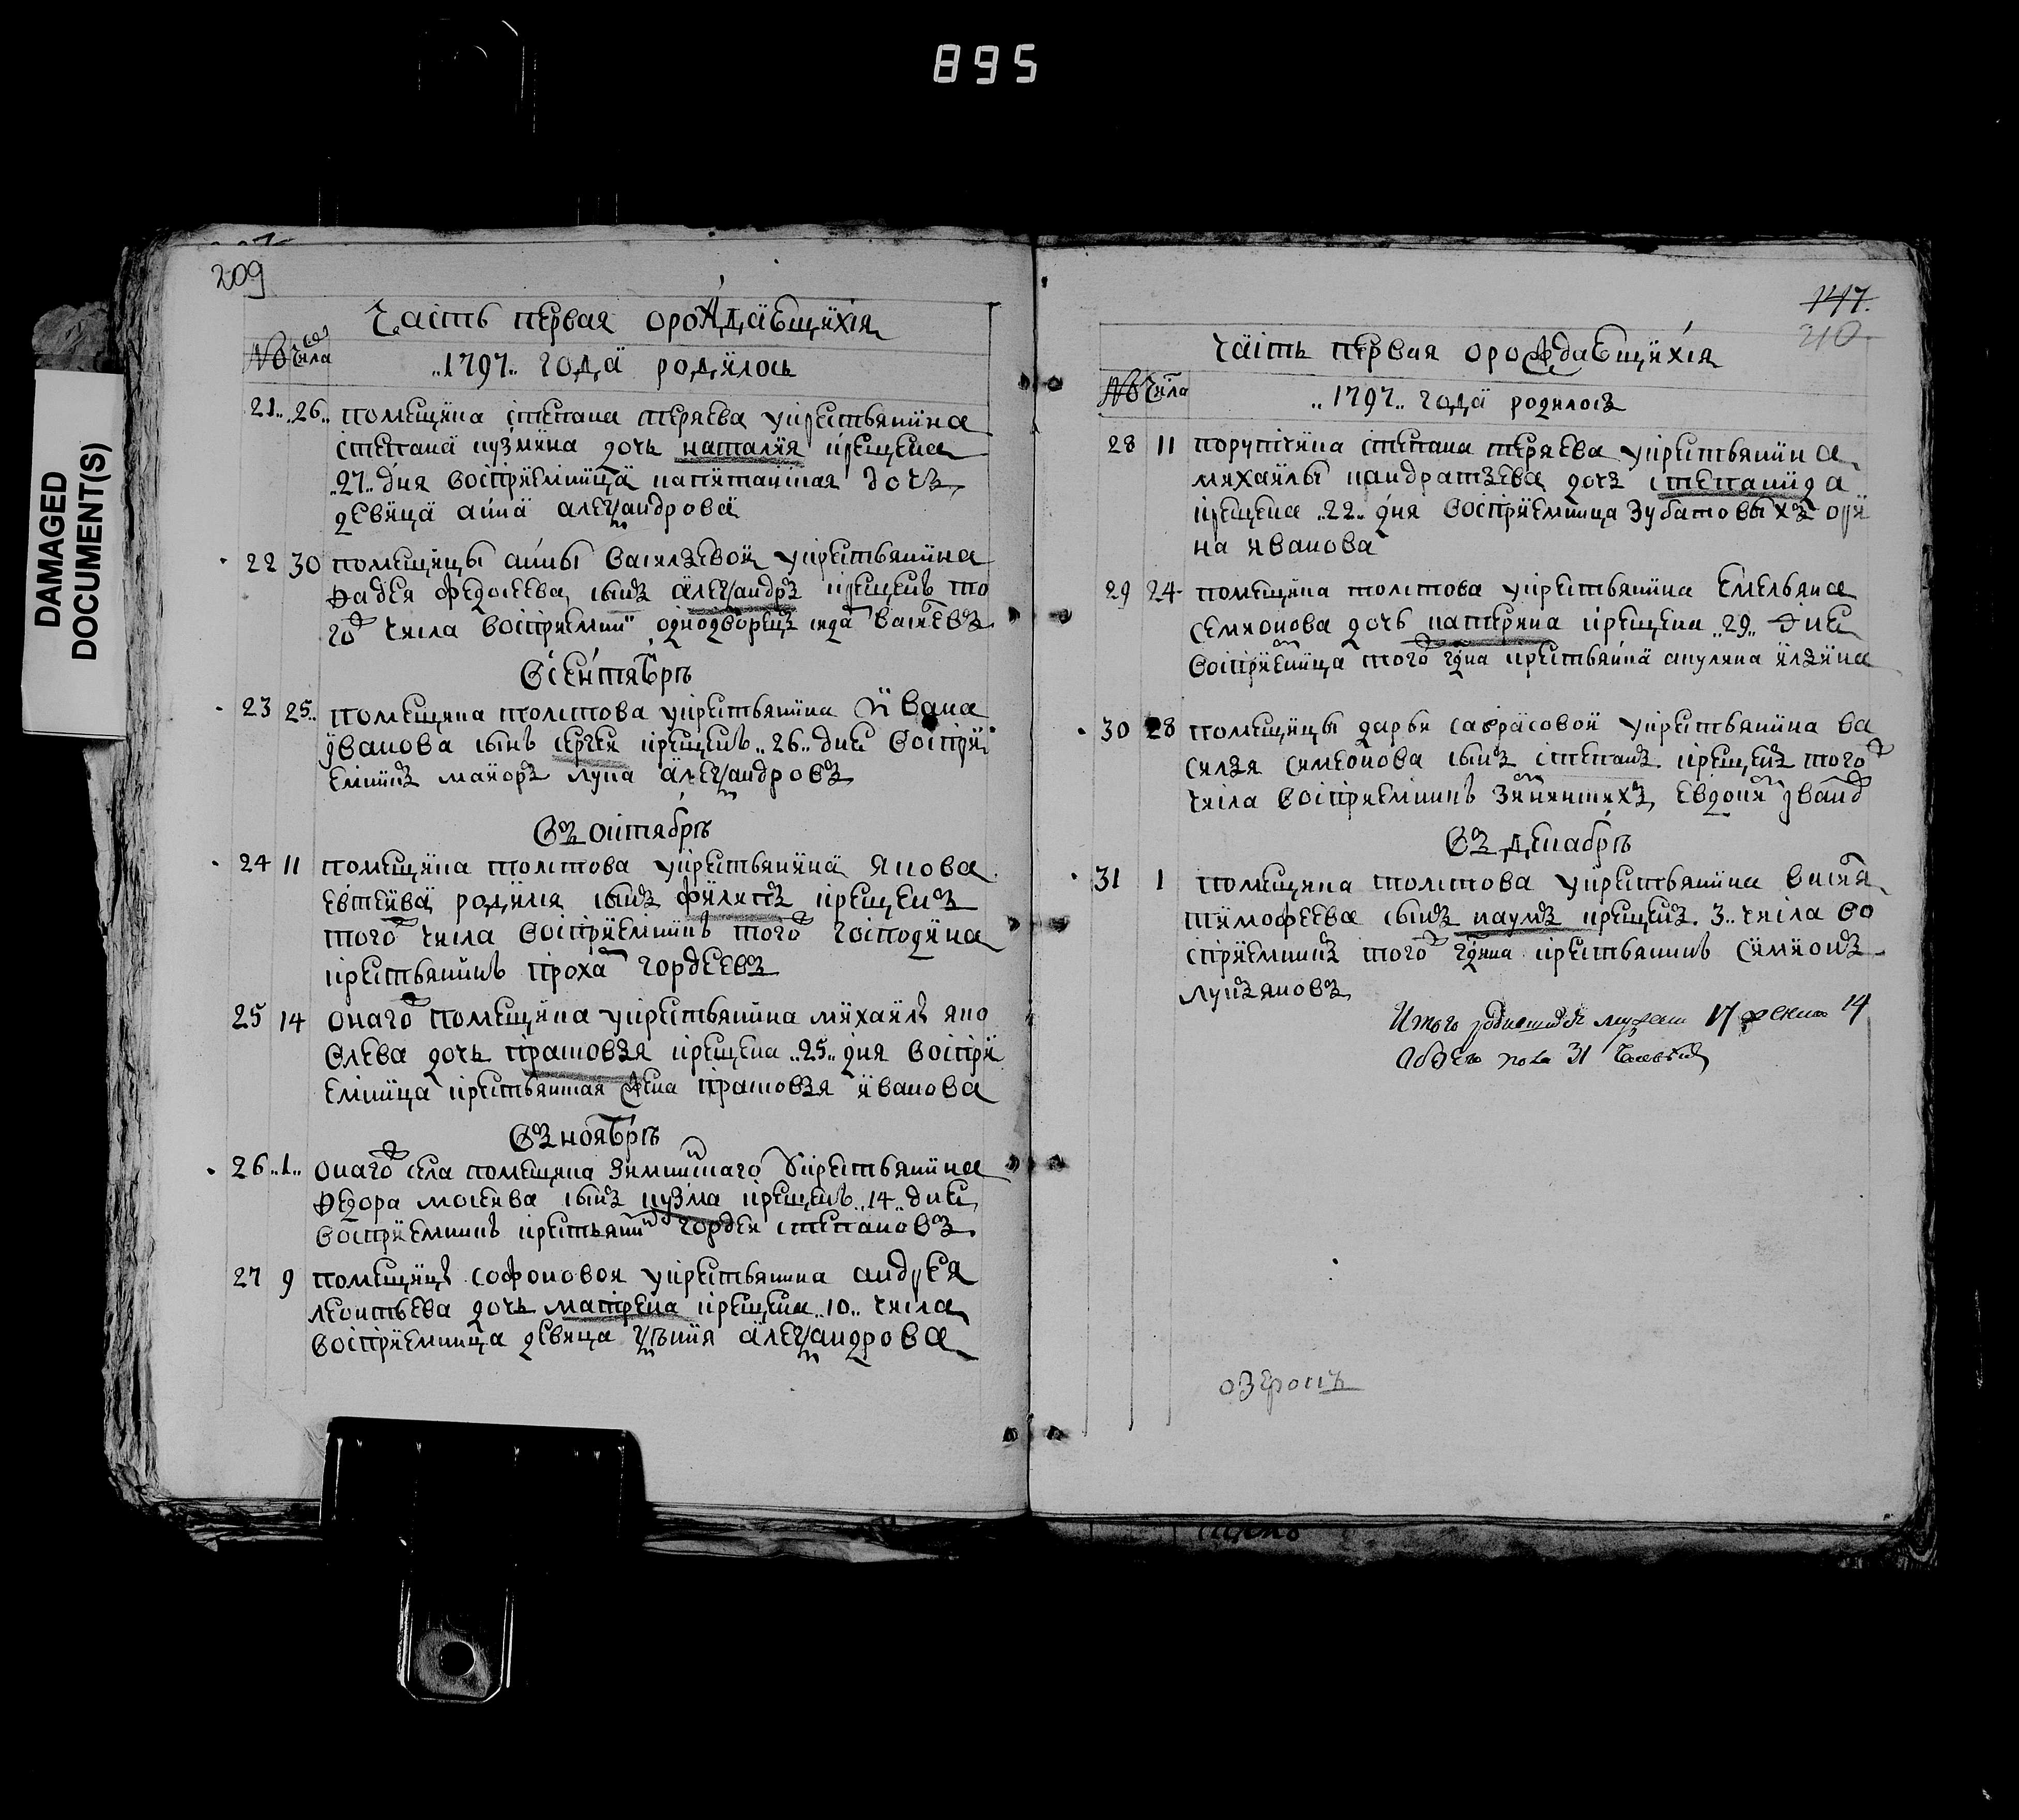 895
DAMAGED
DOCUMENT(S)
209
Часть первая орождающихся
№ Числа
„1797„ года родилось
21„ „26„ помещика степана теряева укрестьянина
степана кузмина дочь наталия крещена
„27„ дня восприемница капитанская дочь
девица анна александрова
22 30 помещицы анны васильевой укрестьянина
фадея федосеева сынъ александръ крещенъ то
го числа восприемник однодворецъ
23 25„ помещика толстова укрестьянина ивана
иванова сынъ сергеи крещенъ „26„ дня воспри
емникъ маиоръ лука александровъ
Въ октябрѣ
24 11 помещика толстова укрестьянина якова
евтеива родился сынъ филипъ крещенъ
того числа восприемникъ того господина
крестьянинъ проха гордеевъ
25 14 онаго помещика укрестьянина михаилы яко
влева дочь прасковья крещена „25„ дня воспри
емница крестьянская жена прасковья иванова
Въ ноябрѣ
26 „1„ онаго села помещика укрестьянина
федора мосеева сынъ кузма крещенъ „14„ дня
восприемникъ крестьянин гордеи степановъ
27 9 помещицы софоновои укрестьянина андрея
леонтьева дочь матрена крещена „10„ числа
восприемница девица александрова
147.
210
Часть первая орождающихся
№ Числа
„1797„ года родилось
28 11 порутчика степана теряева укрестьянина
михаилы кандратьева дочь степанида
крещена „22„ дня восприемница Зубатовыхъ ори
на иванова
29 24 помещика толстова укрестьянина Емельяна
семионова дочь катерина крещена „29„ дня
восприемница того гдна крестьянка акулина ильина
30 28 помещицы дарьи саврасовой укрестьянина ва
силья симеонова сынъ степанъ крещенъ того
числа восприемникъ евдоким
Въ декабрѣ
31 1 помещика толстова укрестьянина
тимофеева сынъ наумъ крещенъ 3„ числа во
сприемникъ того гдина крестьянинъ симионъ
лукьяновъ
Итого родившихся мужеск 17 женска 14
обоего пола 31 человекъ
озерокъ